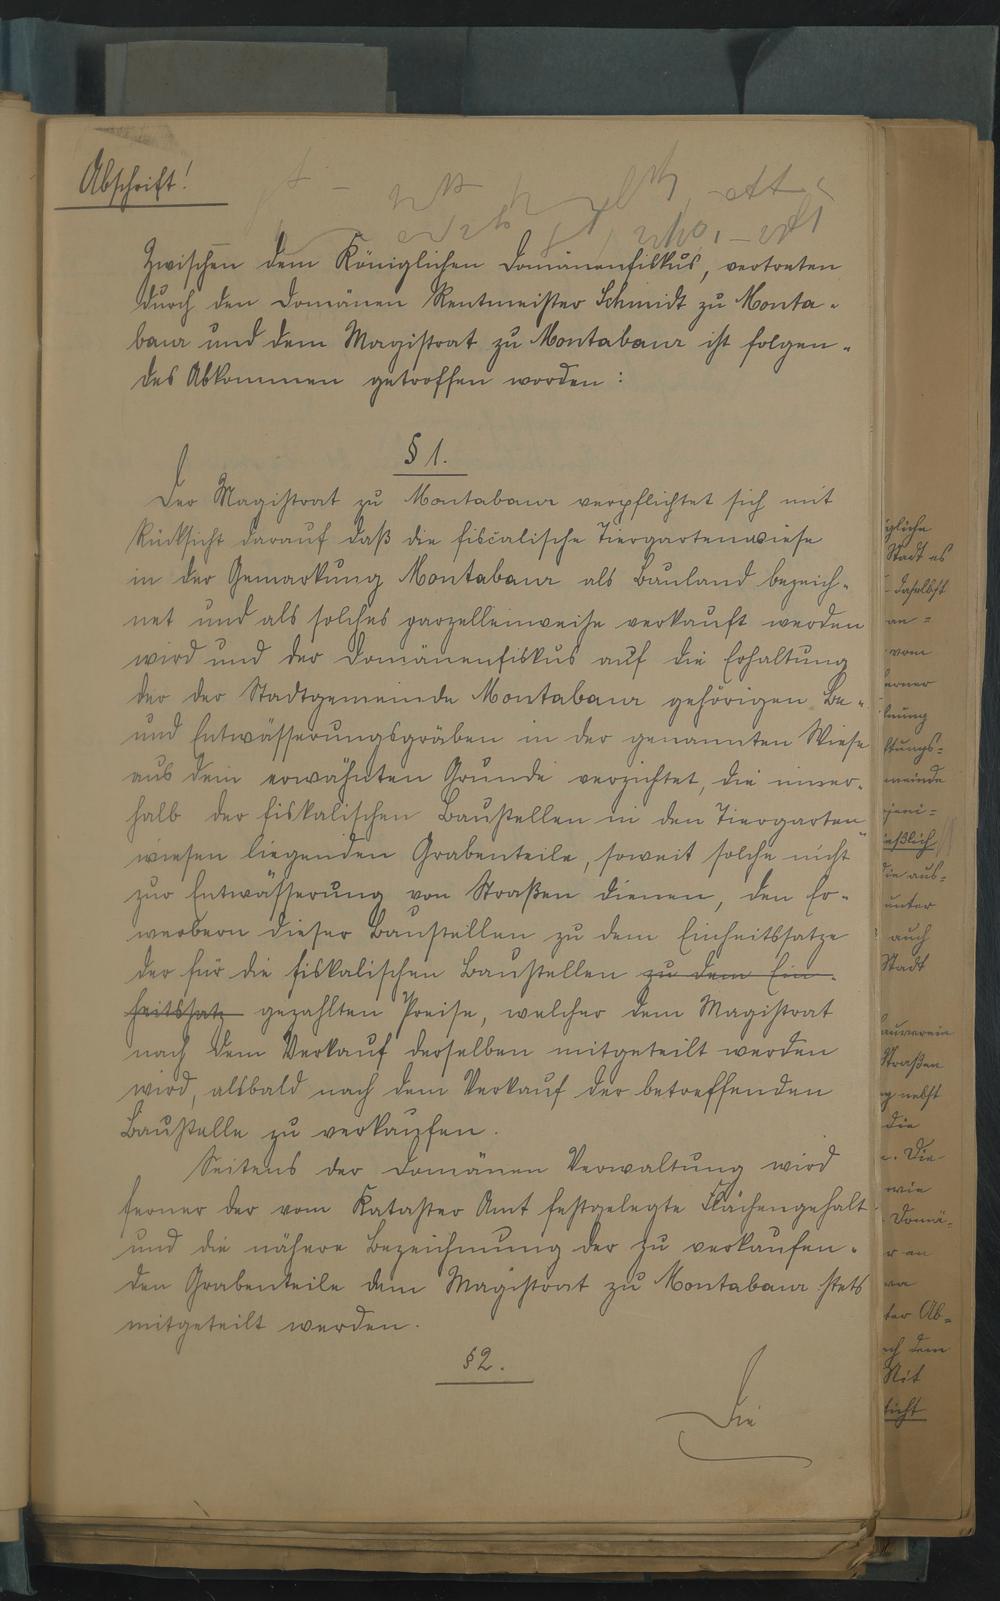 Abschrift!
Zwischen dem Königlichen Domänenfiskus, vertreten
durch den Domänen Rentmeister Schmidt zu Monta-
baur und dem Magistrat zu Montabaur ist folgen-
des Abkommen getroffen worden:
§ 1.
Der Magistrat zu Montabaur verpflichtet sich mit
Rücksicht darauf daß die fiscalische Tiergartenwiese
in der Gemarkung Montabaur als Bauland bezeich-
net und als solches parzellenweise verkauft werden
wird und der Domänenfiskus auf die Erhaltung
der der Stadtgemeinde Montabaur gehörigen Be-
und Entwässerungsgräben in der genannten Wiese
aus dem erwähnten Grunde verzichtet, die inner-
halb der fiskalischen Baustellen in den Tiergarten
wiesen liegenden Grabenteile, soweit solche nicht
zur Entwässerung von Straßen dienen, den Er-
werbern dieser Baustellen zu dem Einheitssatze
der für die fiskalischen Baustellen zu dem Ein-
heitssatz gezahlten Preise, welcher dem Magistrat
nach dem Verkauf derselben mitgeteilt werden
wird, alsbald nach dem Verkauf der betreffenden
Baustelle zu verkaufen.
Seitens der Domänen Verwaltung wird
ferner der vom Kataster Amt festgelegte Flächengehalt
und die nähere Bezeichnung der zu verkaufen-
den Grabenteile dem Magistrat zu Montabaur stets
mitgeteilt werden.
§ 2.
Die
Stadt es
daselbst
an=
vom
meinde
die aus=
unter
auch
Stadt
Straßen
nebst
die
Die
wie
Domä-
an
Ab=
dem
Mit